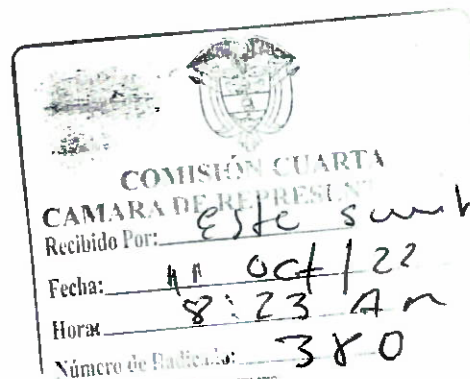 COMISIÓN CUARTA
CAMARA DE REPRESENT
Recibido Por:
Fecha: 11 Oct/22
Hora: 8:23 Am
Número de Radicado: 380